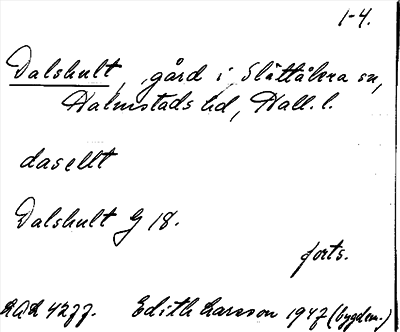 1-4.
Dalshult, gård i Slättåkra sn,
Halmstads hd, Hall. l.
dasellt
Dalshult G 18.
forts.
Edith Larsson 1947 (bygdem.)